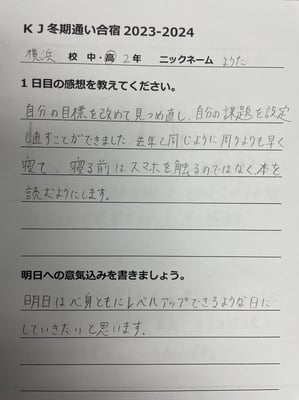 KJ冬期通い合宿 2023-2024
横浜 校 中・高 2年 ニックネーム ようた
1日目の感想を教えてください。
自分の目標を改めて見つめ直し、自分の課題を設定
し直すことができました。去年と同じように周りよりも早く
寝て、寝る前はスマホを触るのではなく、本を
読むようにします。
明日への意気込みを書きましょう。
明日は心身ともにレベルアップできるような日に
していきたいと思います。